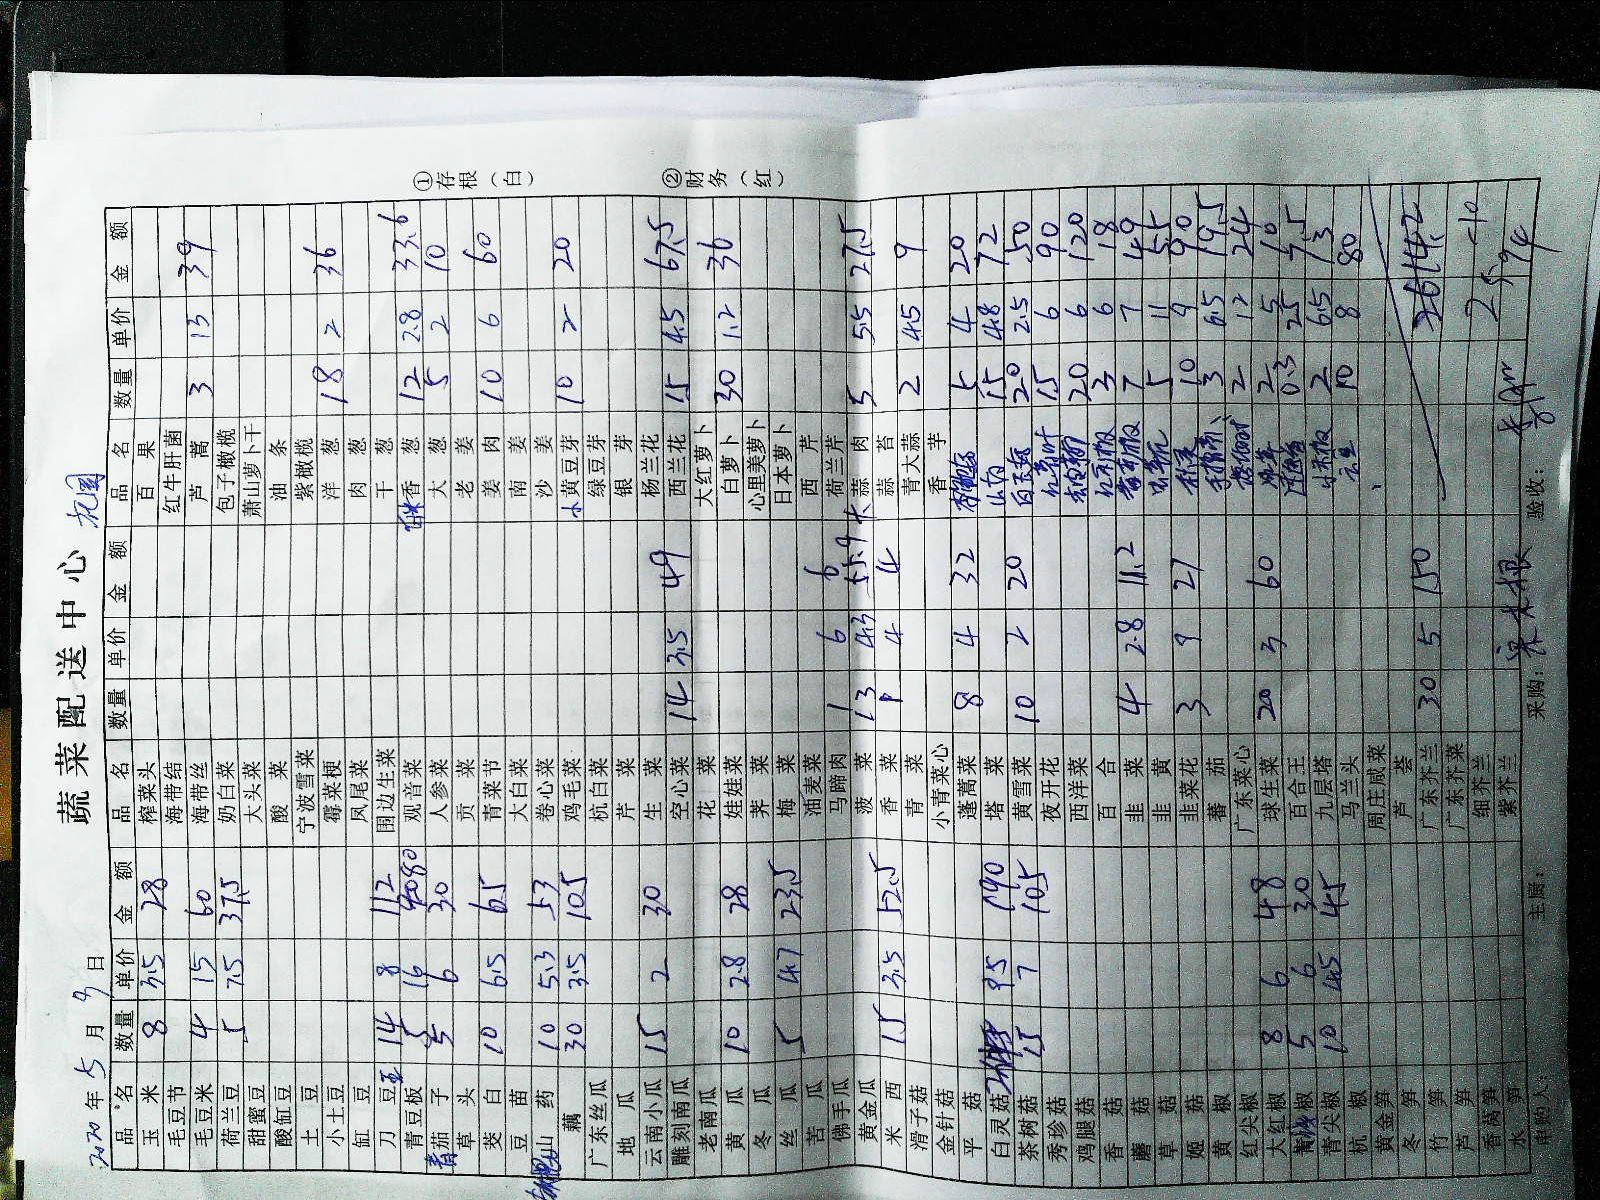 蔬菜配送中心 花园
2020年5月9日
品名 数量 单价 金额 品名 数量 单价 金额 品名 数量 单价 金额
玉米 8 3.5 28 榨菜头 百果
毛豆节 海带结 红牛肝菌
毛豆米 4 15 60 海带丝 芦蒿 3 13 39
荷兰豆 5 7.5 37.5 奶白菜 包子橄榄
甜蜜豆 大头菜 萧山萝卜干
酸缸豆 酸菜 油条
土豆 宁波雪菜 紫橄榄
小土豆 霉菜梗 洋葱 18 2 36
缸豆 凤尾菜 肉葱
刀豆 14 8 112 围边生菜 干葱
青豆板 5 16 80 观音菜 香葱 12 2.8 33.6
茄子 5 6 30 人参菜 大葱 5 2 10
草头 贡菜 老姜
茭白 10 6.5 65 青菜节 姜肉 10 6 60
豆苗 大白菜 南姜
山药 10 5.3 53 卷心菜 沙姜
藕 30 3.5 105 鸡毛菜 小黄豆芽 10 2 20
广东丝瓜 杭白菜 绿豆芽
地瓜 芹菜 银芽
云南小瓜 15 2 30 生菜 杨兰花
雕刻南瓜 空心菜 14 3.5 49 西兰花 15 4.5 67.5
老南瓜 花菜 大红萝卜
黄瓜 10 2.8 28 娃娃菜 白萝卜 30 1.2 36
冬瓜 荠菜 心里美萝卜
丝瓜 5 4.7 23.5 梅菜 日本萝卜
苦瓜 油麦菜 西芹
佛手瓜 马蹄肉 1 6 6 荷兰芹
黄金瓜 菠菜 13 4.3 55.9 蒜肉 5 5.5 27.5
米西 15 3.5 52.5 香菜 1 4 4 蒜苔
滑子菇 青菜 青大蒜 2 4.5 9
金针菇 小青菜心 香芋
平菇 蓬蒿菜 8 4 32 5 4 20
白灵菇 9.5 190 塔菜 山药 15 4.8 72
茶树菇 15 7 105 黄雪菜 10 2 20 20 2.5 50
秀珍菇 夜开花 15 6 90
鸡腿菇 西洋菜 20 6 120
香菇 百合 3 6 18
蘑菇 韭菜 4 2.8 11.2 7 7 49
草菇 韭黄 5 11 55
姬菇 韭菜花 3 9 27 10 9 90
黄椒 蕃茄 3 6.5 19.5
红尖椒 广东菜心 2 12 24
大红椒 8 6 48 球生菜 20 3 60 2 5 10
椒 5 6 30 百合王 0.3 25 7.5
青尖椒 10 4.5 45 九层塔 2 6.5 13
杭椒 马兰头 10 8 80
黄金笋 周庄咸菜
冬笋 芦荟
竹笋 广东芥兰 30 5 150
芦笋 广东芥菜
香莴笋 细芥兰
水笋 紫芥兰 2594
申购人： 主厨： 采购： 验收：
①存根（白）
②财务（红）